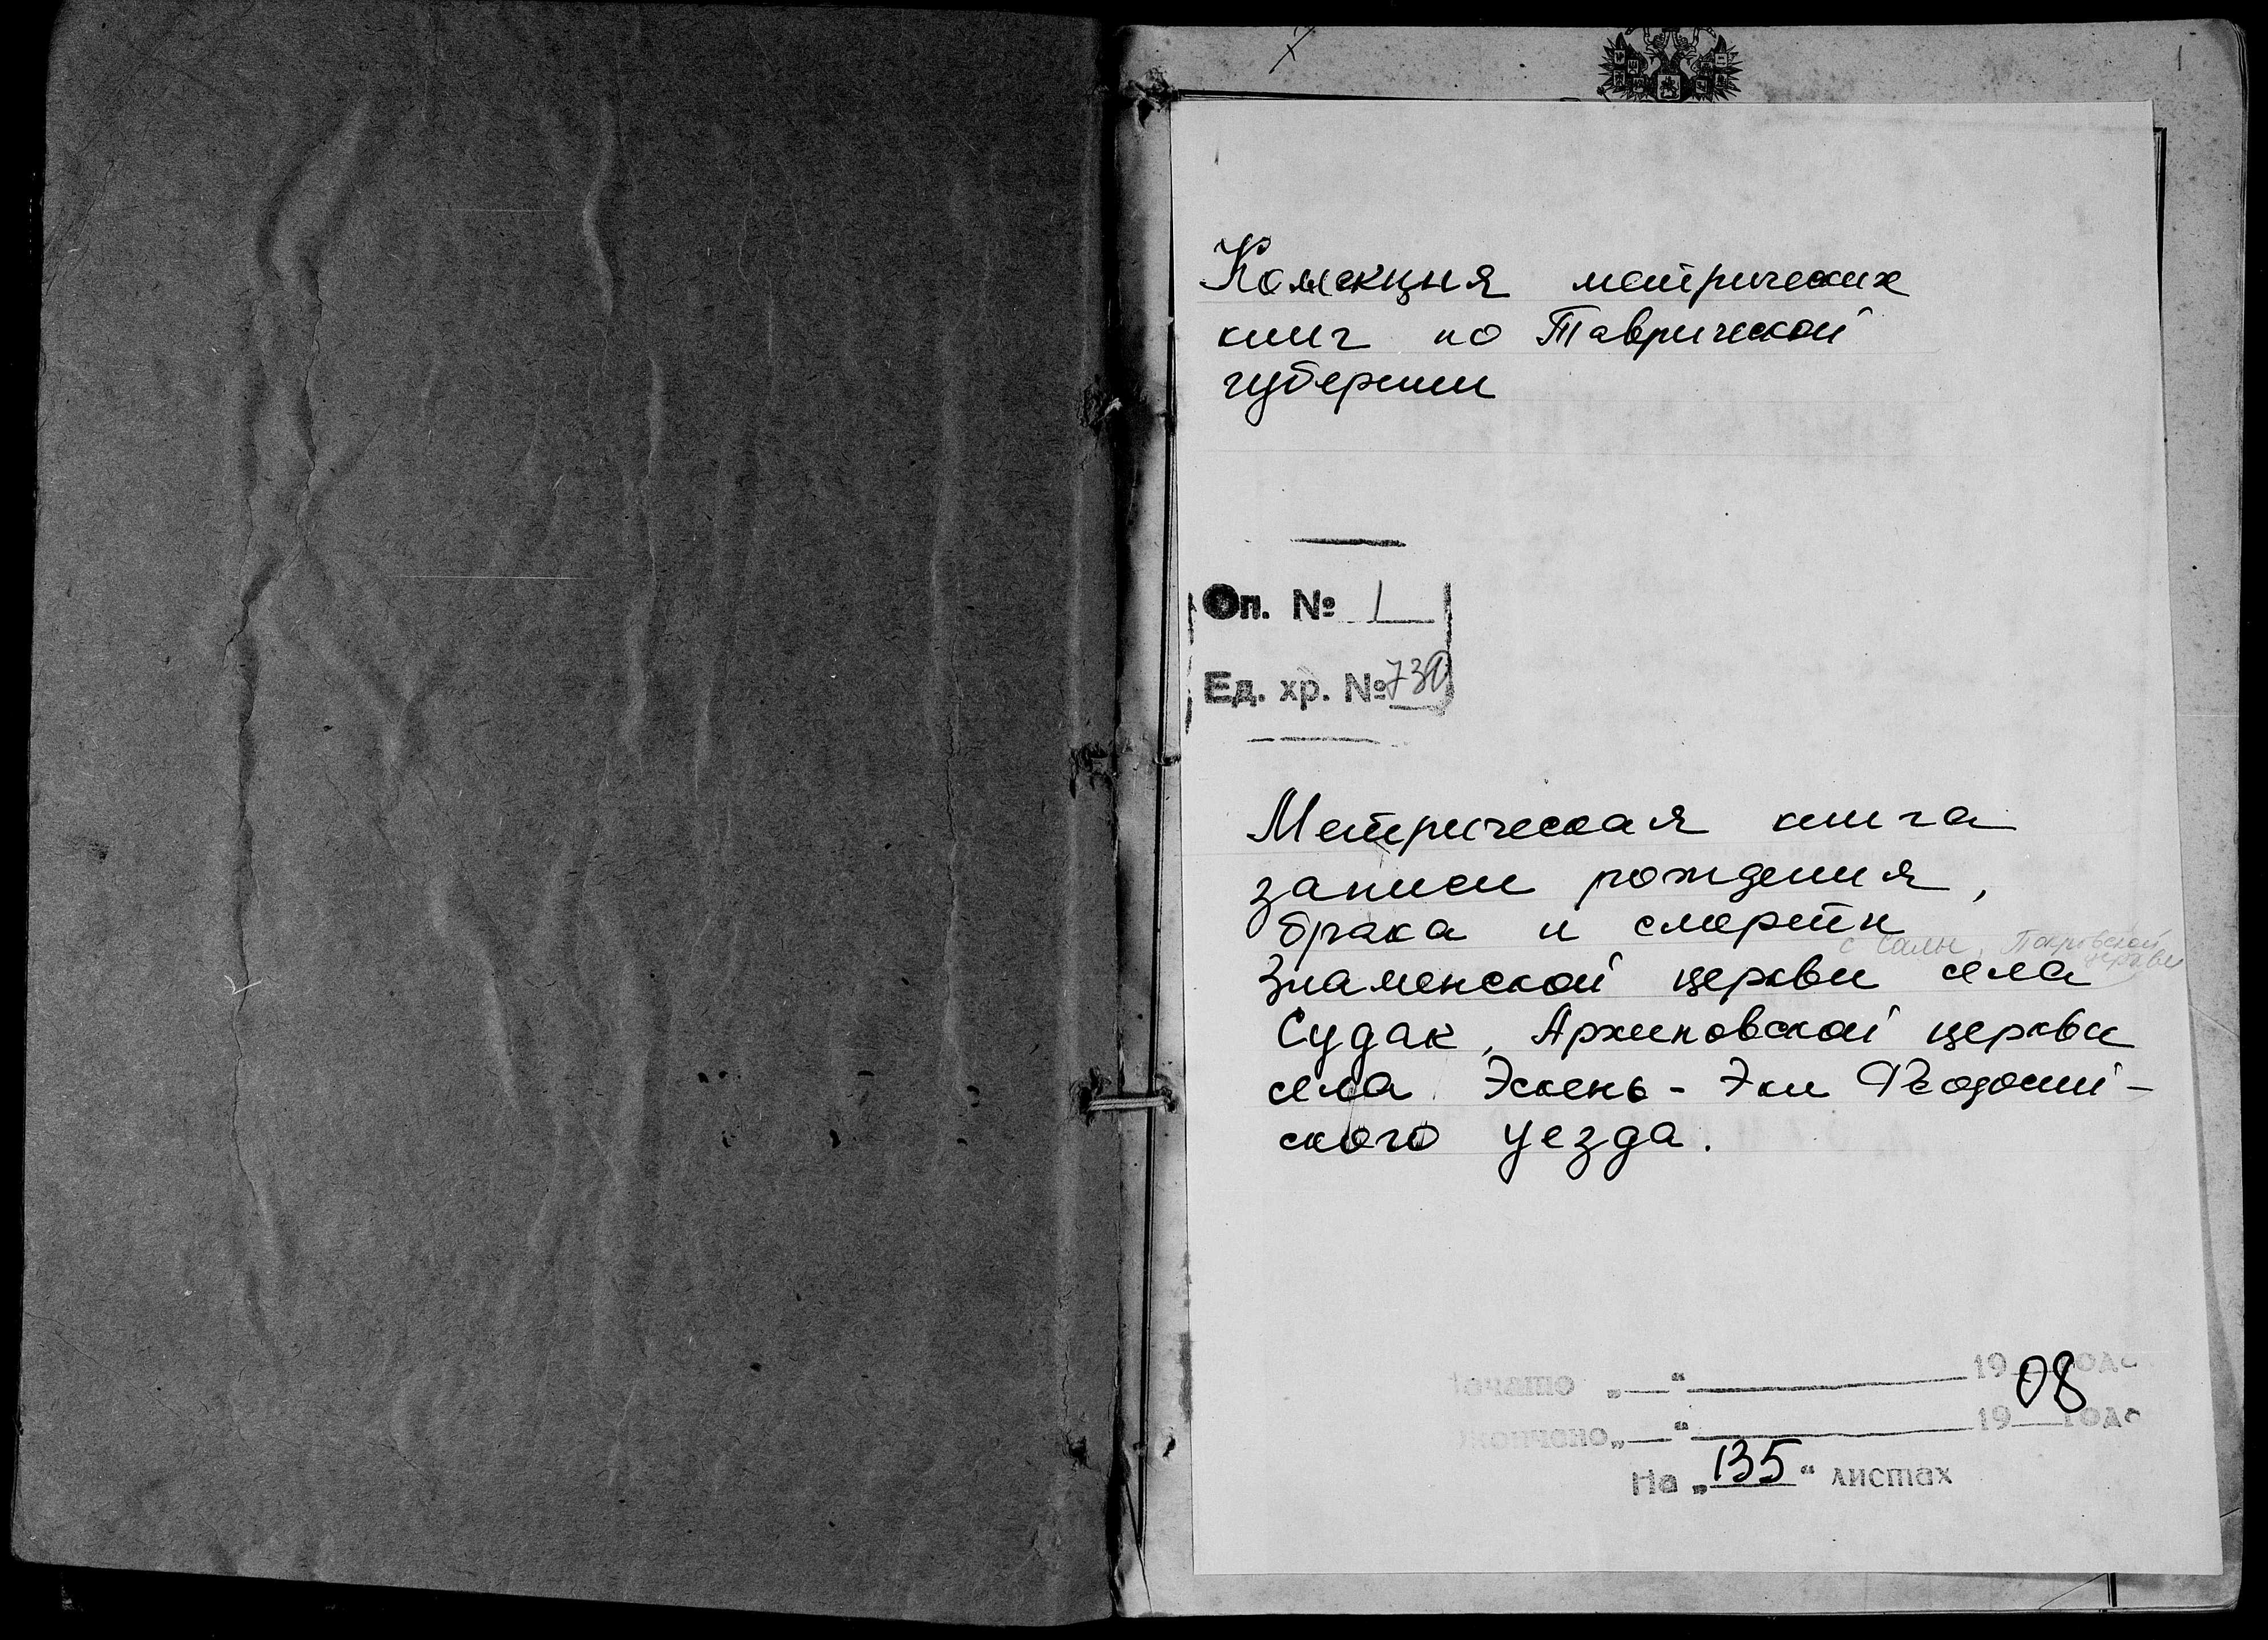 1
Коллекция метрических
книг по Таврической
губернии
Оп. № 1
Ед. хр. № 739
Метрическая книга
записи рождения,
брака и смерти
с Салы, Покровской
церкви
Знаменской церкви села
Судак, Архиповской церкви
села Эскень-Эки Феодосий-
ского уезда.
Начато „—“ 19 года
08
Окончено „—“ 19 года
На „135“ листах